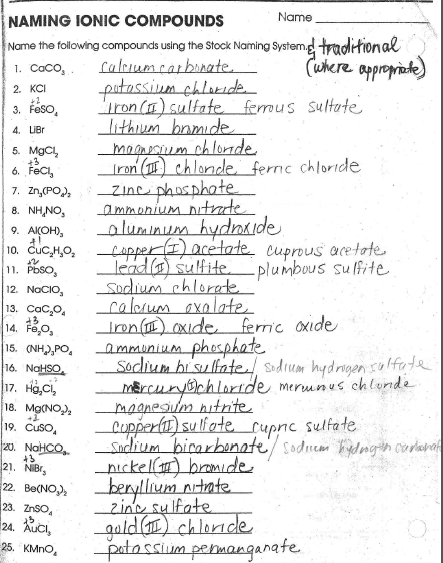 NAMING IONIC COMPOUNDS Name
Name the following compounds using the Stock Naming System. & traditional
(where appropriate)
1. CaCO₃ calcium carbonate
2. KCl potassium chloride
+2
3. FeSO₄ iron (II) sulfate ferrous sulfate
4. LiBr lithium bromide
5. MgCl₂ magnesium chloride
+3
6. FeCl₃ iron (III) chloride ferric chloride
7. Zn₃(PO₄)₂ zinc phosphate
8. NH₄NO₃ ammonium nitrate
9. Al(OH)₃ aluminum hydroxide
+1
10. CuC₂H₃O₂ copper (I) acetate cuprous acetate
+2
11. PbSO₃ lead (II) sulfite plumbous sulfite
12. NaClO₃ sodium chlorate
13. CaC₂O₄ calcium oxalate
+3
14. Fe₂O₃ iron (III) oxide ferric oxide
15. (NH₄)₃PO₄ ammonium phosphate
16. NaHSO₄ Sodium bisulfate / sodium hydrogen sulfate
17. Hg₂Cl₂ mercury (I) chloride mercurous chloride
18. Mg(NO₂)₂ magnesium nitrite
+2
19. CuSO₄ copper (II) sulfate cupric sulfate
20. NaHCO₃ Sodium bicarbonate / Sodium hydrogen carbonate
+3
21. NiBr₃ nickel (III) bromide
22. Be(NO₃)₂ beryllium nitrate
23. ZnSO₄ zinc sulfate
+3
24. AuCl₃ gold (III) chloride
25. KMnO₄ potassium permanganate